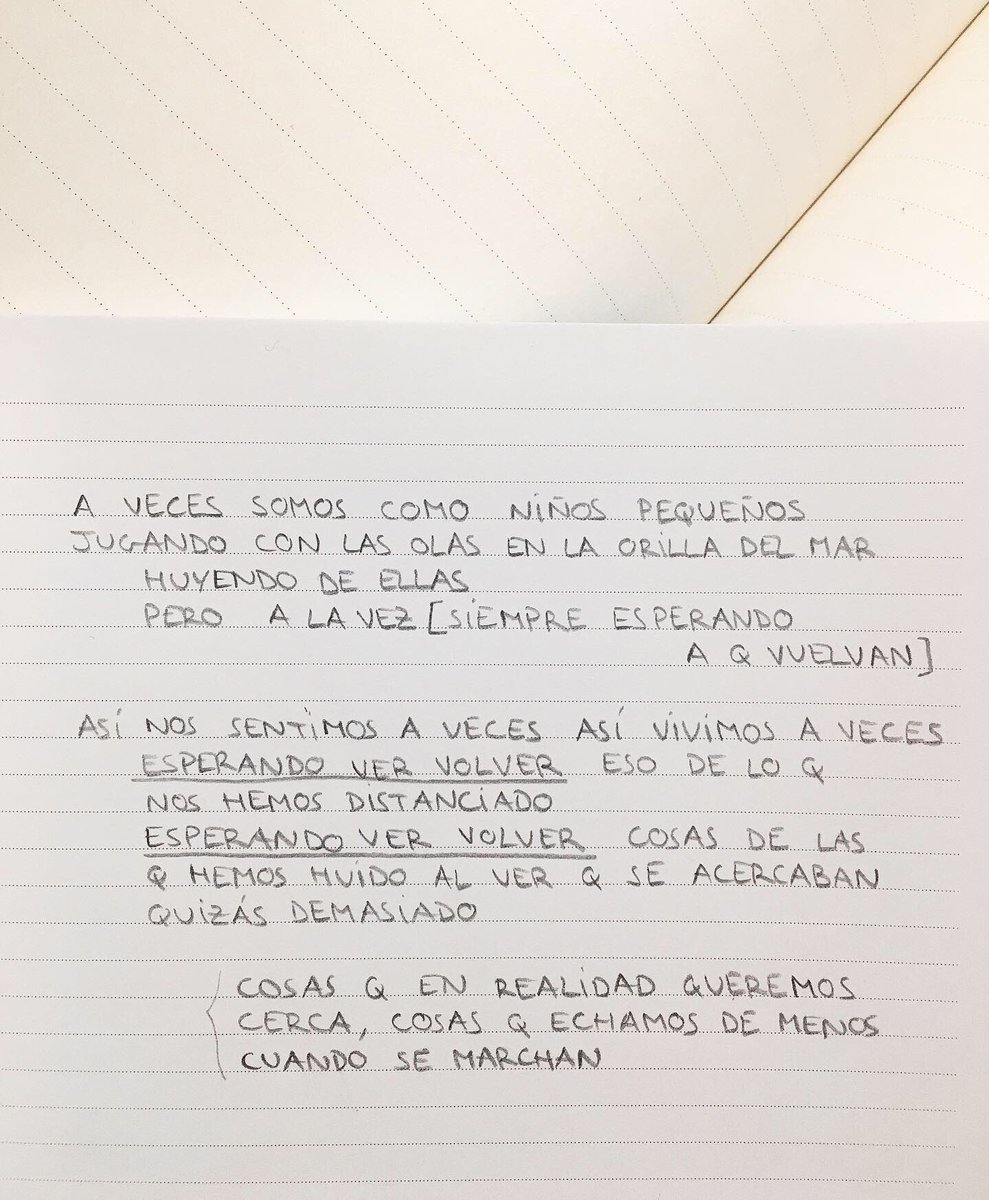 A VECES SOMOS COMO NIÑOS PEQUEÑOS
JUGANDO CON LAS OLAS EN LA ORILLA DEL MAR
HUYENDO DE ELLAS
PERO A LA VEZ [SIEMPRE ESPERANDO
A Q VUELVAN]
ASÍ NOS SENTIMOS A VECES ASÍ VIVIMOS A VECES
ESPERANDO VER VOLVER ESO DE LO Q
NOS HEMOS DISTANCIADO
ESPERANDO VER VOLVER COSAS DE LAS
Q HEMOS HUIDO AL VER Q SE ACERCABAN
QUIZÁS DEMASIADO
COSAS Q EN REALIDAD QUEREMOS
CERCA, COSAS Q ECHAMOS DE MENOS
CUANDO SE MARCHAN